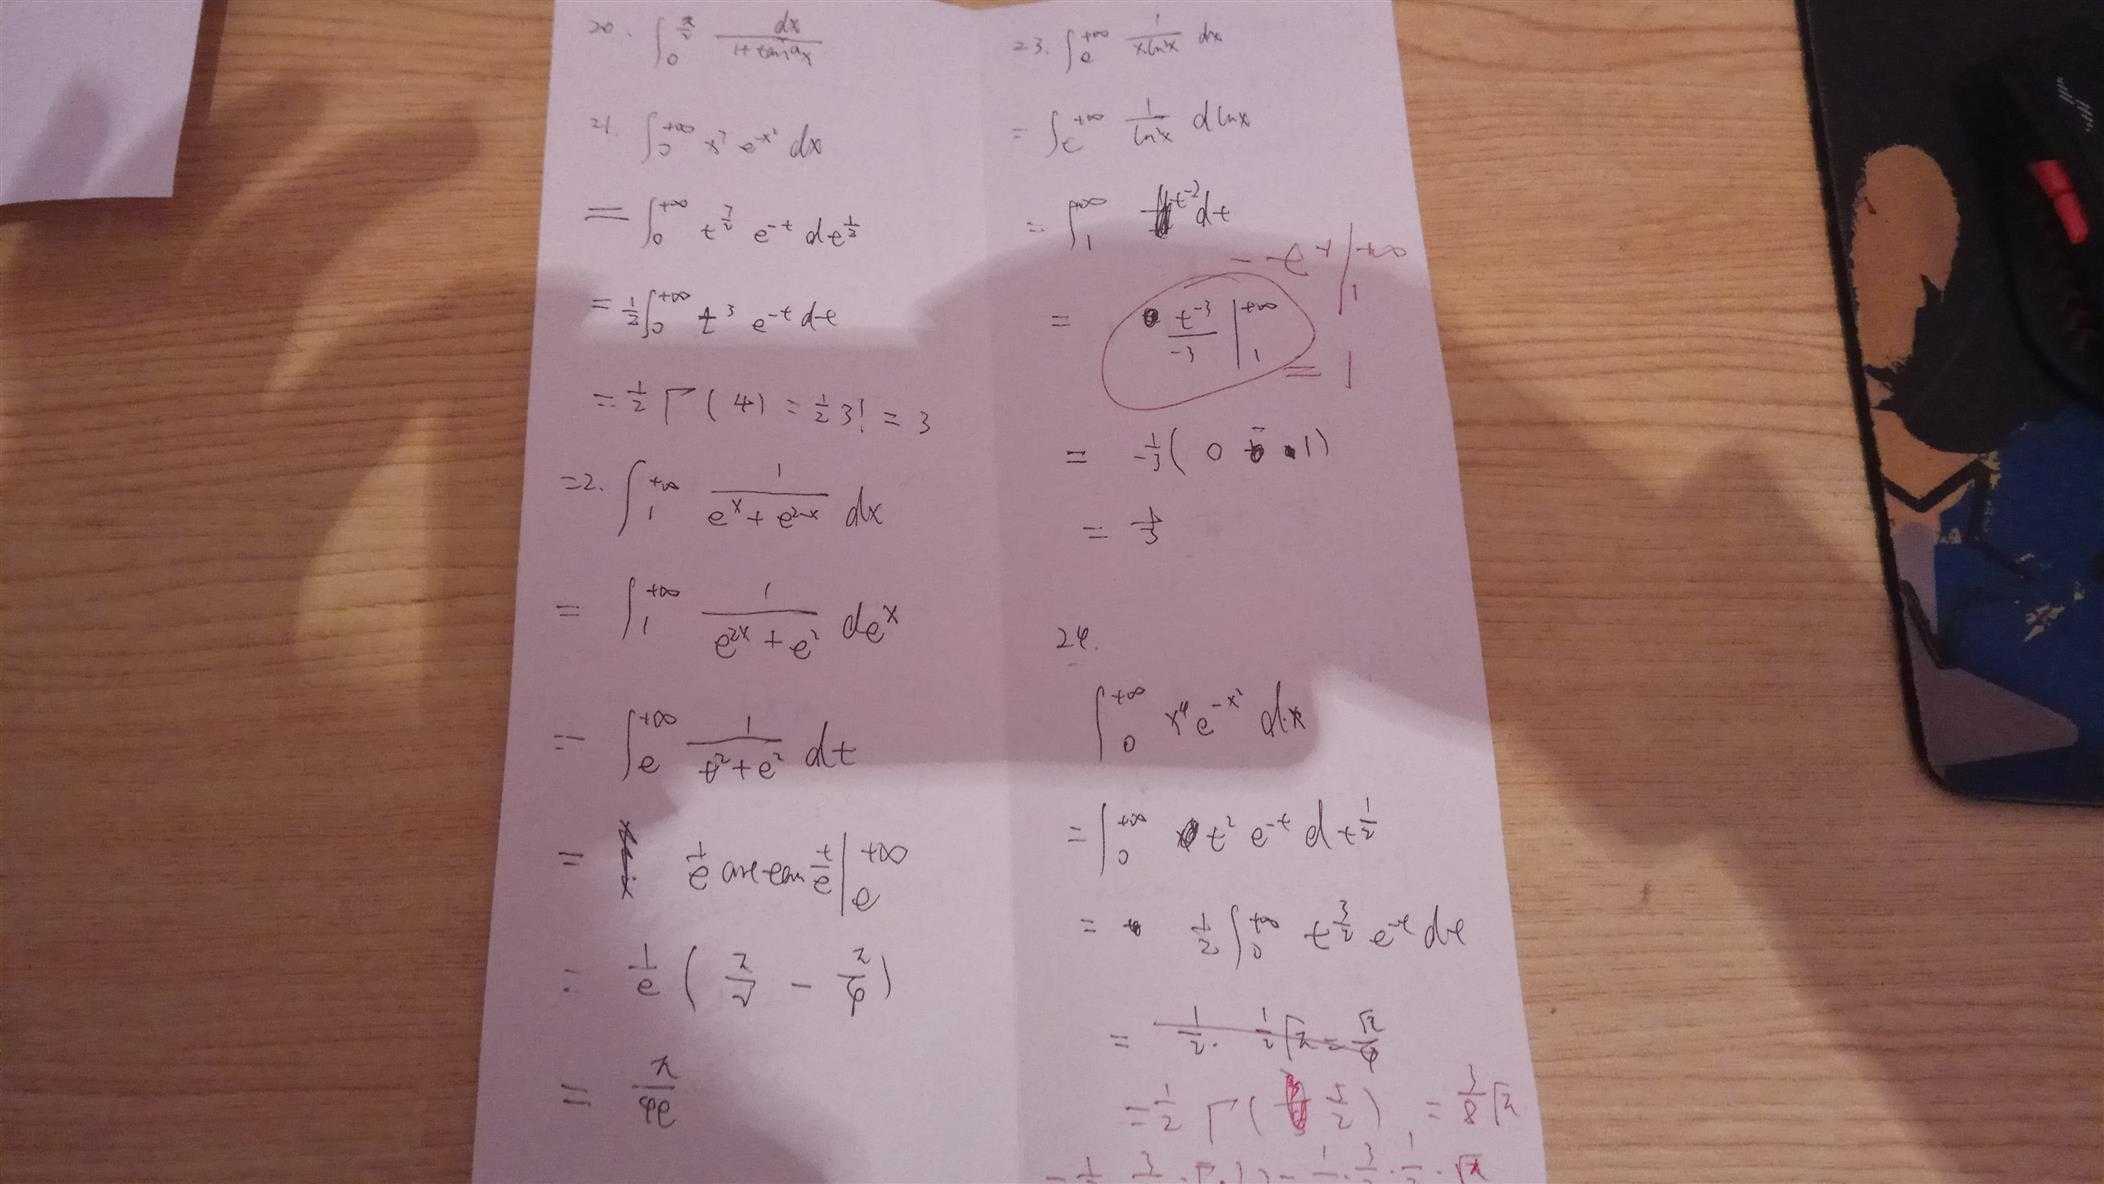 20. ∫₀^{π/2} dx/(1+tan^a x)
21. ∫₀^{+∞} x⁷ e^{-x²} dx
= ∫₀^{+∞} t^{7/2} e^{-t} dt^{1/2}
= 1/2 ∫₀^{+∞} t³ e^{-t} dt
= 1/2 Γ(4) = 1/2 3! = 3
22. ∫₁^{+∞} 1/(e^x + e^{2-x}) dx
= ∫₁^{+∞} 1/(e^{2x} + e²) de^x
= ∫_e^{+∞} 1/(t² + e²) dt
= 1/e arctan t/e |_e^{+∞}
= 1/e (π/2 - π/4)
= π/4e
23. ∫_e^{+∞} 1/(x ln²x) dx
= ∫_e^{+∞} 1/ln²x d lnx
= ∫₁^{+∞} t^{-2} dt
- t^{-1} |₁^{+∞}
= t^{-3}/-3 |₁^{+∞}
= 1
= -1/3 (0 - 1)
= 1/3
24.
∫₀^{+∞} x⁴ e^{-x²} dx
= ∫₀^{+∞} t² e^{-t} dt^{1/2}
= 1/2 ∫₀^{+∞} t^{3/2} e^{-t} dt
= 1/2 · 1/2 √π = √π/4
= 1/2 Γ(5/2) = 3/8 √π